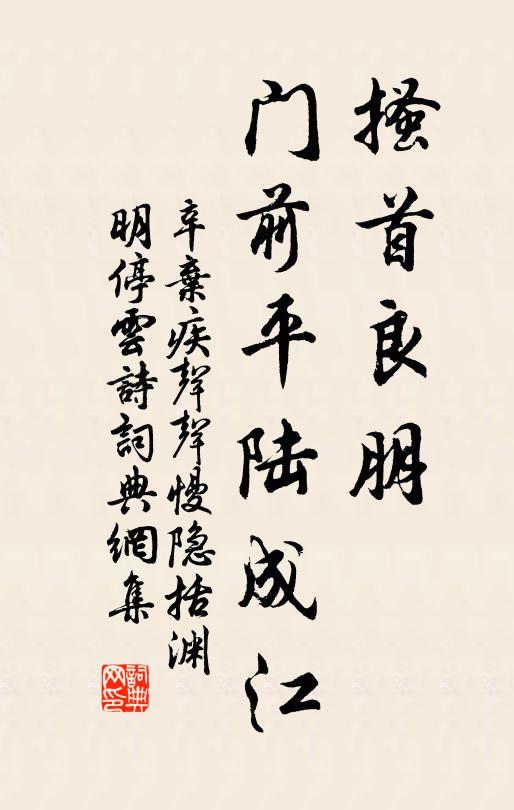 搔首良朋
门前平陆成江
辛棄疾聲聲慢隐括渊
明停雲詩詞典網集
詞典网印